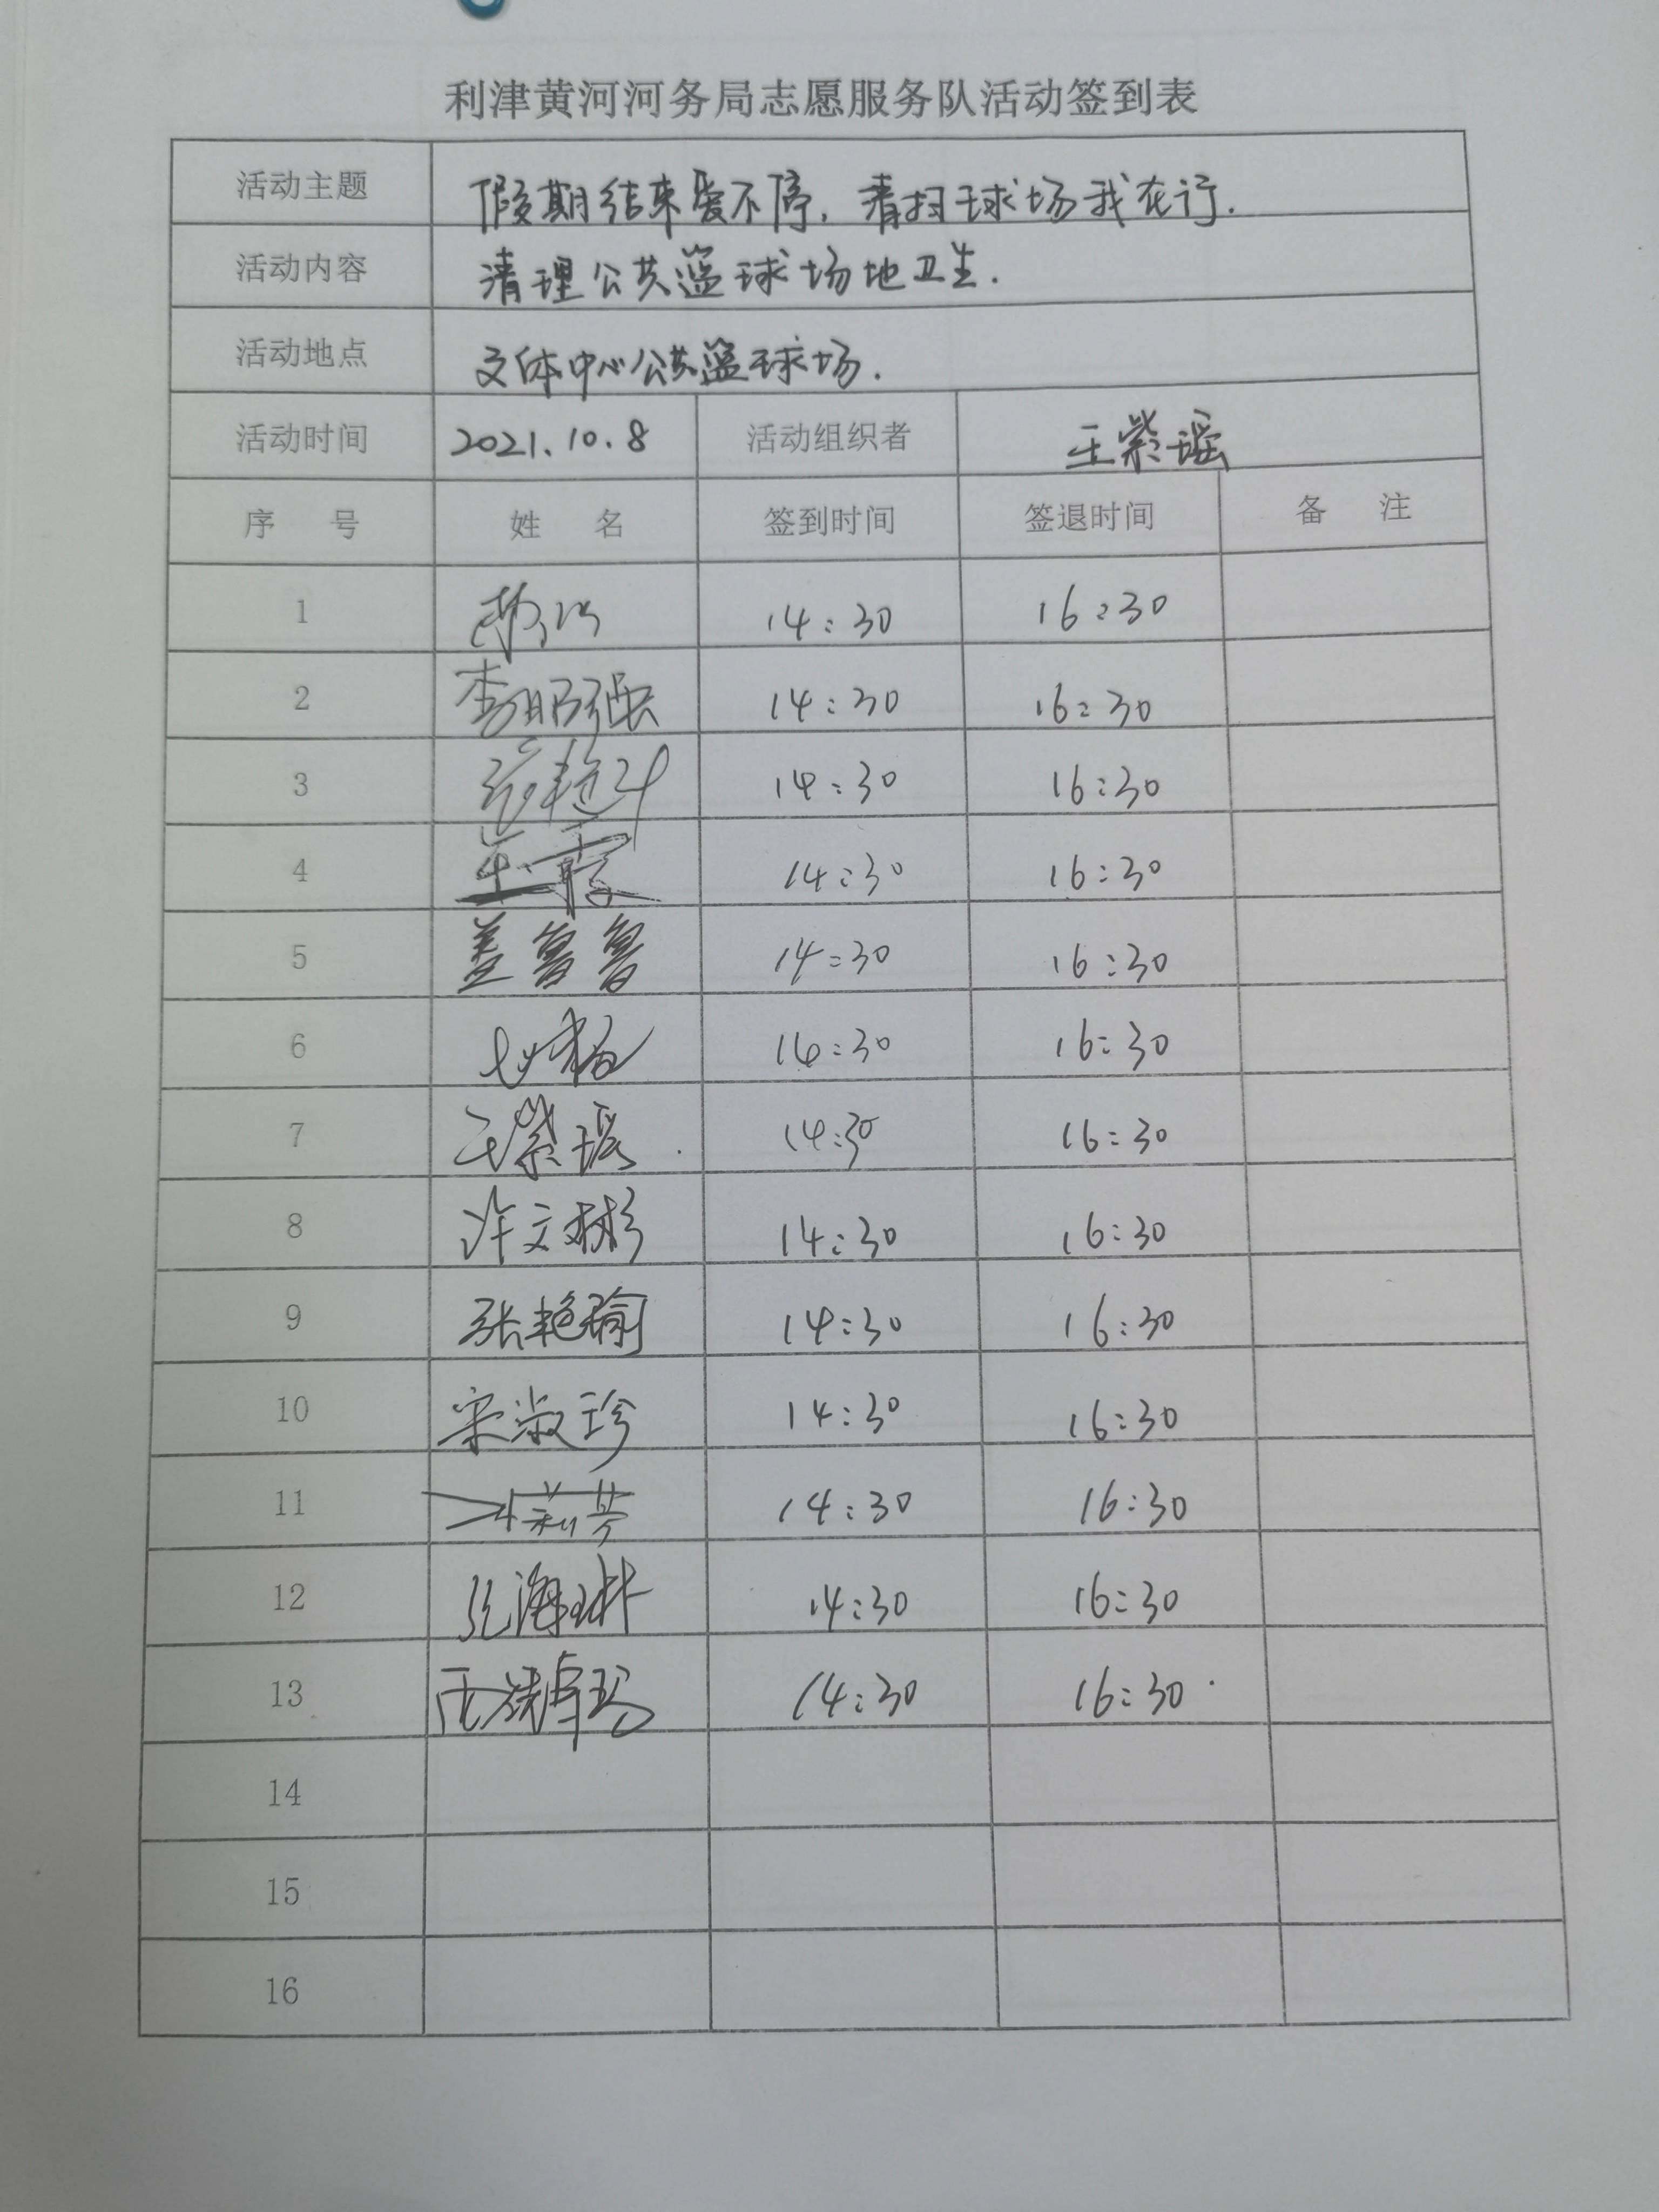 利津黄河河务局志愿服务队活动签到表
活动主题 假期结束爱不停，清扫球场我在行.
活动内容 清理公共篮球场地卫生.
活动地点 文体中心公共篮球场.
活动时间 2021.10.8 活动组织者 王紫瑶
序 号 姓 名 签到时间 签退时间 备 注
1 14:30 16:30
2 李明强 14:30 16:30
3 14:30 16:30
4 14:30 16:30
5 盖鲁鲁 14:30 16:30
6 14:30 16:30
7 王紫瑶 14:30 16:30
8 许文彬 14:30 16:30
9 张艳瑜 14:30 16:30
10 宋淑珍 14:30 16:30
11 14:30 16:30
12 张海琳 14:30 16:30
13 14:30 16:30
14
15
16